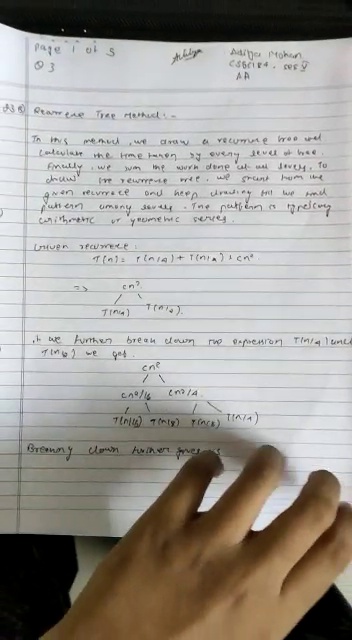 Page 1 of 5
Aditya Mohan
Q3
AA
Recurrence Tree Method :-
In this method, we draw a recurrence tree and
calculate the time taken by every level of tree
Finally, we sum the work done at all levels. To
draw the recurrence tree, we start from the
given recurrence and keep drawing till we find
pattern among levels. The pattern is typically
arithmetic or geometric series.
Given recurrence:
T(n) = T(n/4) + T(n/2) + cn²
=> cn²
T(n/4) T(n/2)
If we further break down the expression T(n/4) and
we get
cn²
cn²/16 cn²/4
T(n/16) T(n/8) T(n/8) T(n/4)
Breaking down further gives us